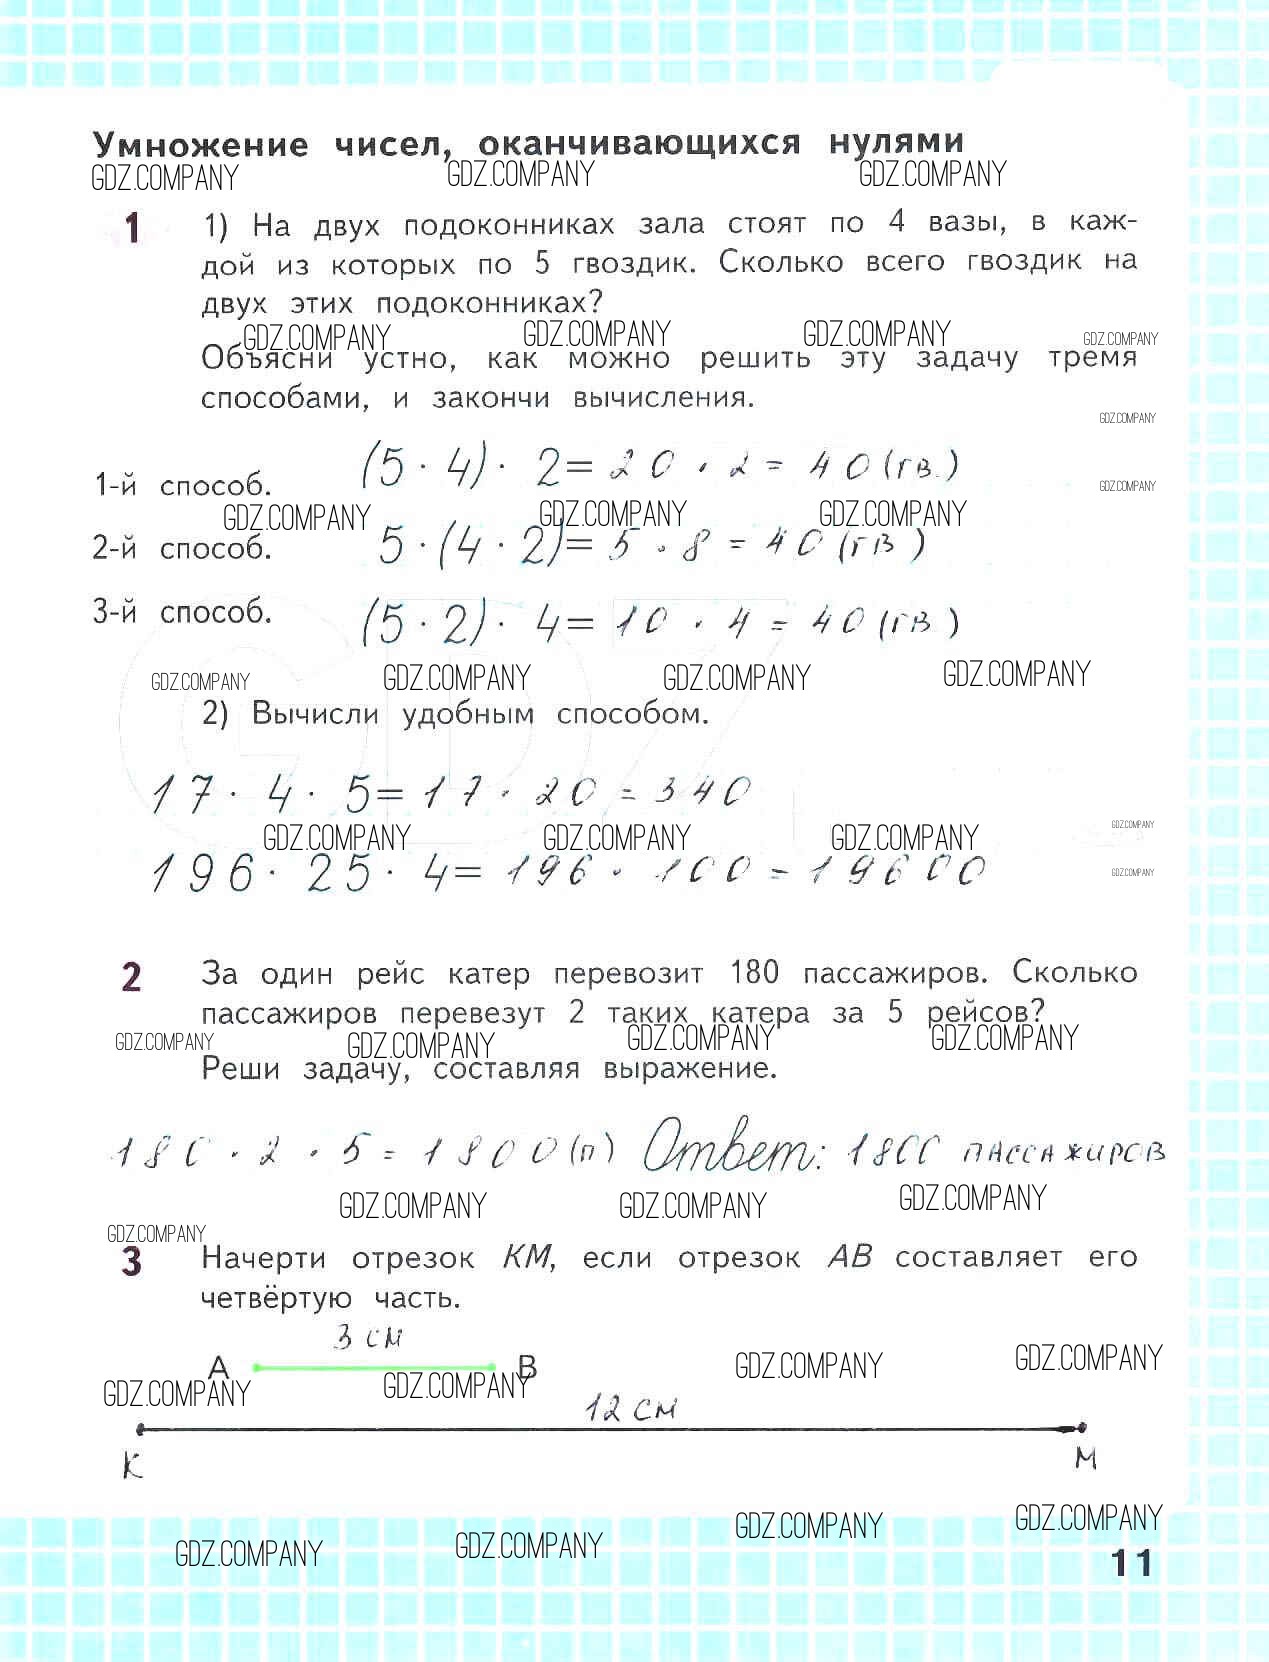 Умножение чисел, оканчивающихся нулями
GDZ.COMPANY GDZ.COMPANY GDZ.COMPANY
1 1) На двух подоконниках зала стоят по 4 вазы, в каж-
дой из которых по 5 гвоздик. Сколько всего гвоздик на
двух этих подоконниках?
GDZ.COMPANY GDZ.COMPANY GDZ.COMPANY GDZ.COMPANY
Объясни устно, как можно решить эту задачу тремя
способами, и закончи вычисления.
GDZ.COMPANY
1-й способ. (5 · 4) · 2= 20 · 2 = 40 (гв.)
GDZ.COMPANY
GDZ.COMPANY GDZ.COMPANY GDZ.COMPANY
2-й способ. 5 · (4 · 2)= 5 · 8 = 40 (гв)
3-й способ. (5 · 2) · 4= 10 · 4 = 40 (гв)
GDZ.COMPANY GDZ.COMPANY GDZ.COMPANY GDZ.COMPANY
2) Вычисли удобным способом.
17 · 4 · 5= 17 · 20 = 340
GDZ.COMPANY GDZ.COMPANY GDZ.COMPANY GDZ.COMPANY
196 · 25 · 4= 196 · 100 = 19600
GDZ.COMPANY
2 За один рейс катер перевозит 180 пассажиров. Сколько
пассажиров перевезут 2 таких катера за 5 рейсов?
GDZ.COMPANY GDZ.COMPANY GDZ.COMPANY GDZ.COMPANY
Реши задачу, составляя выражение.
180 · 2 · 5 = 1800 (п) Ответ: 1800 пассажиров
GDZ.COMPANY GDZ.COMPANY GDZ.COMPANY
GDZ.COMPANY
3 Начерти отрезок КМ, если отрезок АВ составляет его
четвёртую часть.
3 см
А В
GDZ.COMPANY GDZ.COMPANY GDZ.COMPANY GDZ.COMPANY
12 см
К М
GDZ.COMPANY GDZ.COMPANY GDZ.COMPANY GDZ.COMPANY
11